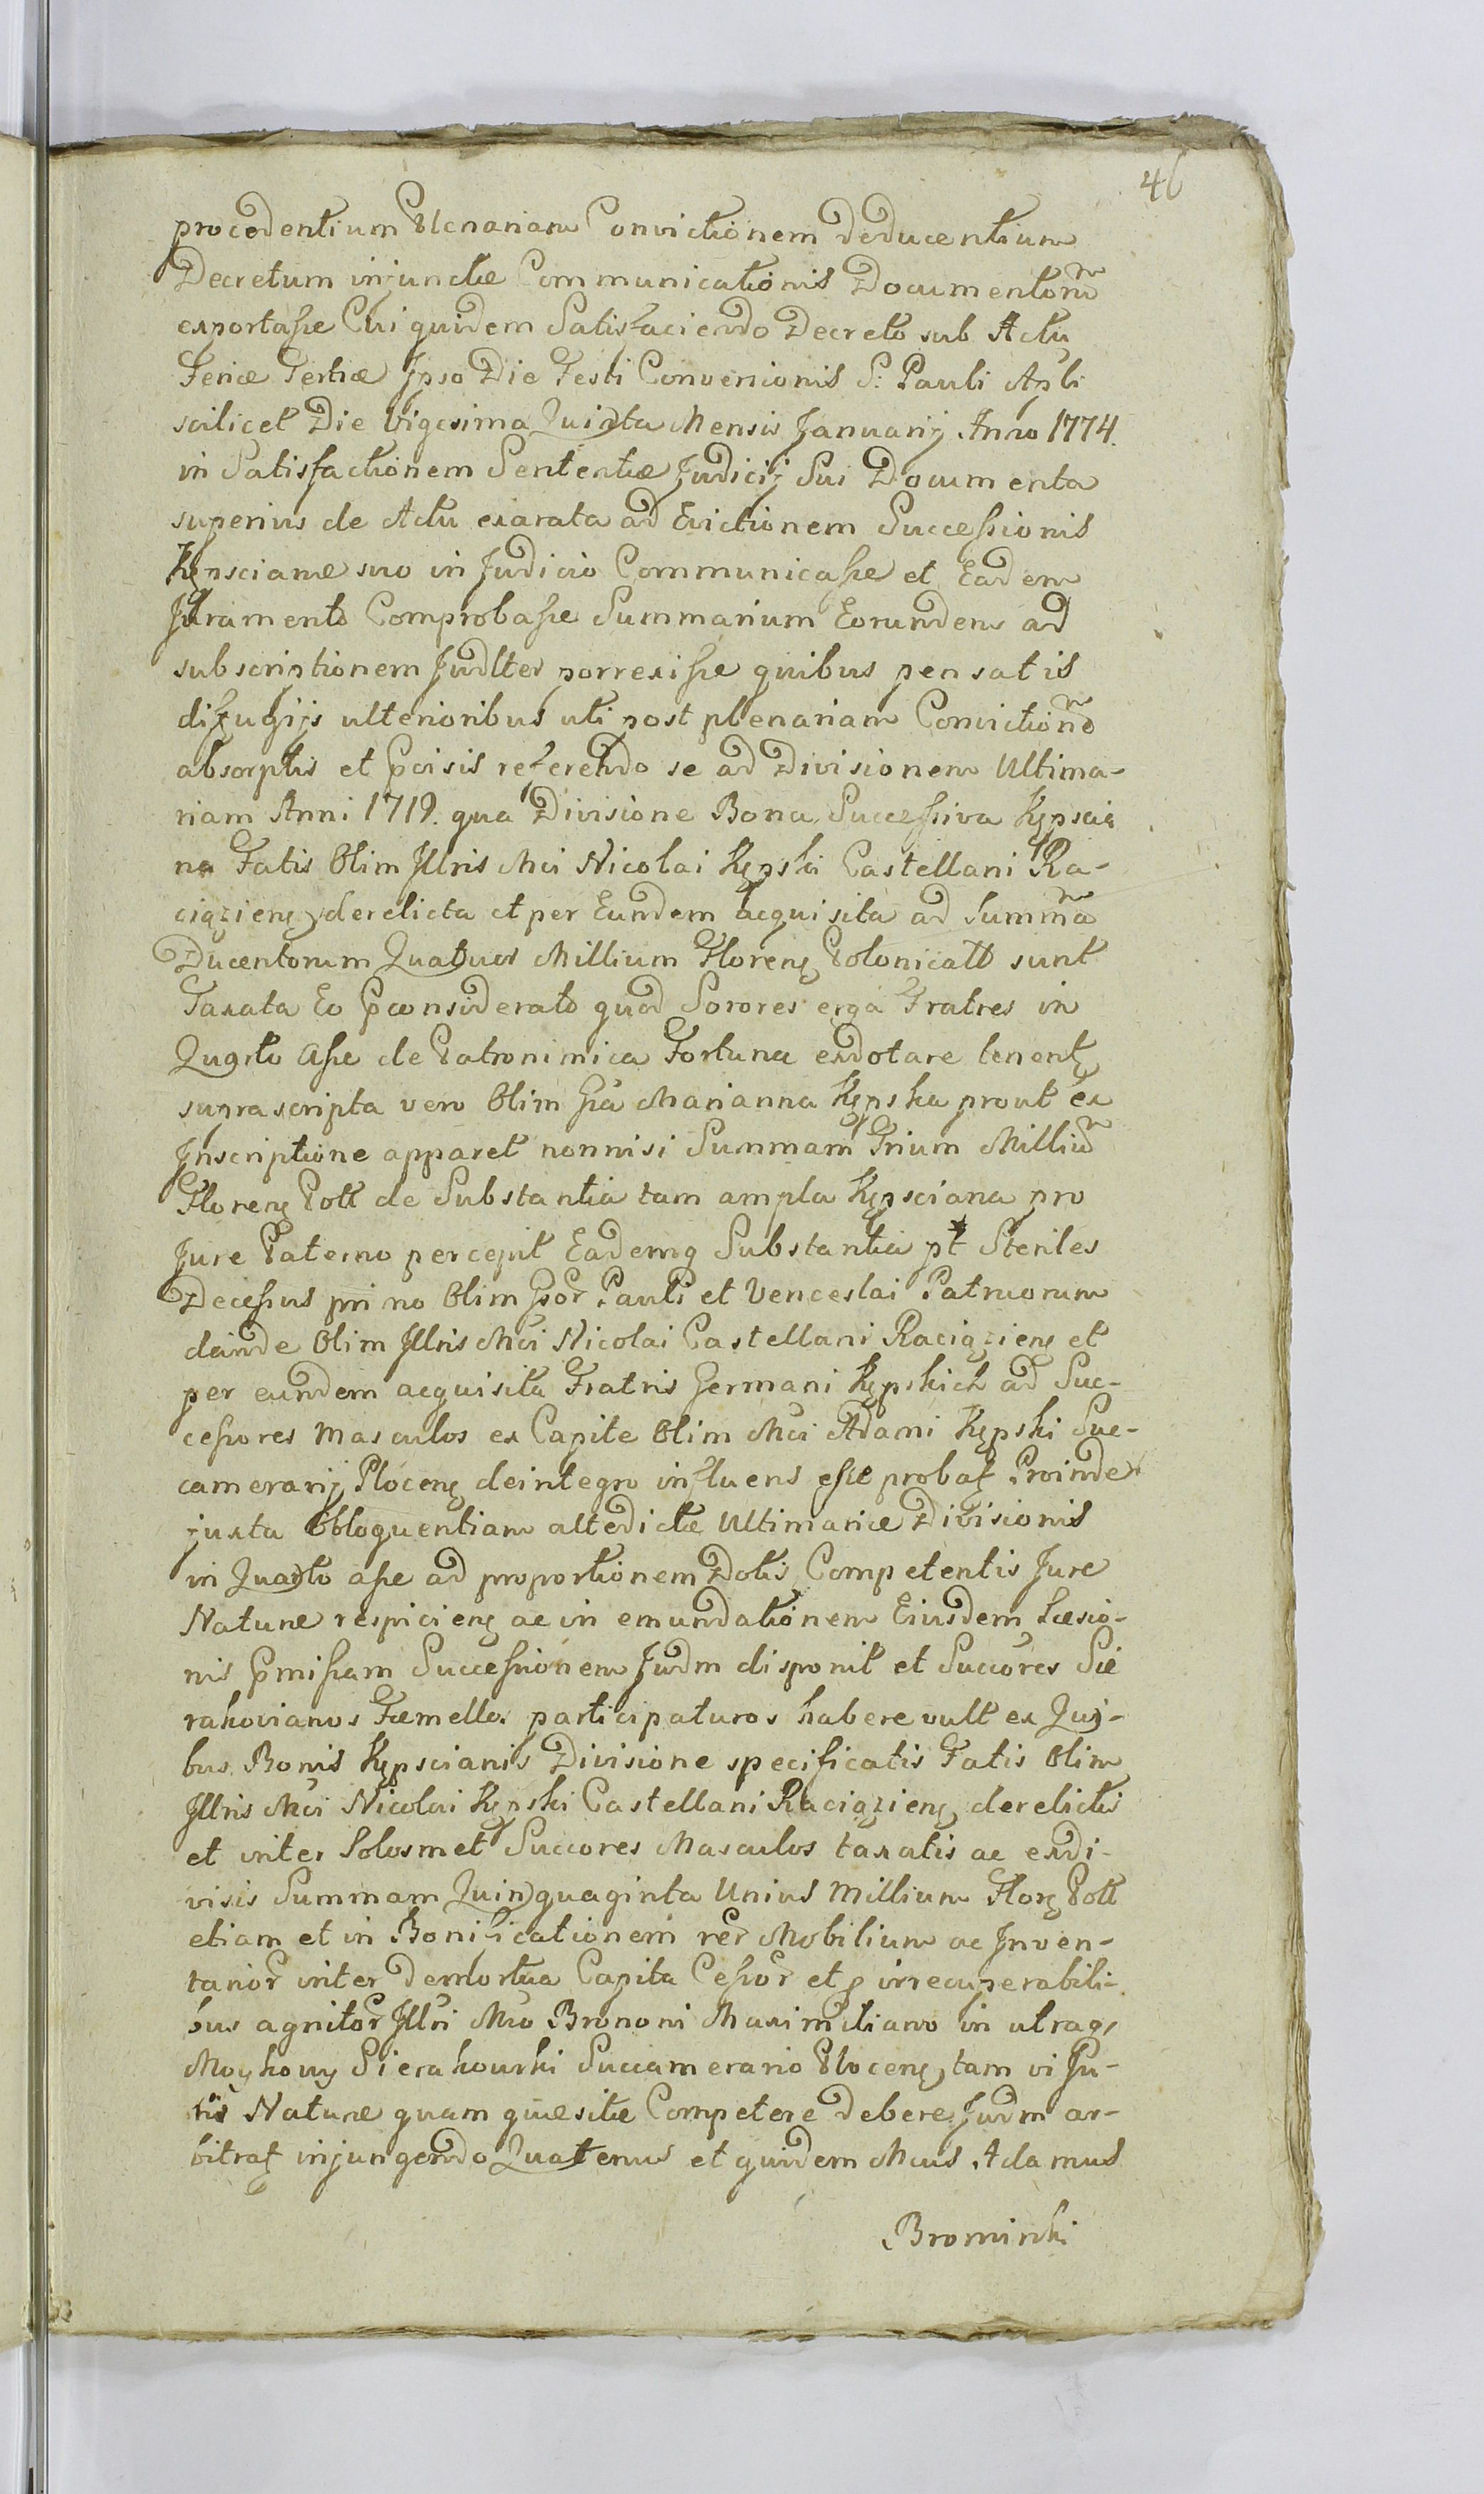 46
procedentium Plenariam Convictionem deducentium
Decretum injunctæ Communicationis Documentorũ
exportasse Cui quidem Satisfaciendo Decreto sub Actu
Feriæ Tertiæ Ipso Die Festi Conversionis S: Pauli Apli
scilicet Die Vigesima Quinta Mensis Januarij Anno 1774.
in Satisfactionem Sententiæ Judicij Sui Documenta
superius de Actu exarata ad Evictionem Successionis
Kępscianæ suo in Judicio Communicasse et Eadem
Juramento Comprobasse Summarium Eorundem ad
subscriptionem Judlter porrexisse quibus pensatis
diffugijs ulterioribus uti post plenariam Convictionẽ
absorptis et pcisis referendo se ad Divisionem Ultima-
riam Anni 1719. qua Divisione Bona Successiva Kępscia
na Fatis Olim Illris Mci Nicolai Kępski Castellani Ra-
ciązien derelicta et per Eundem acquisita ad Summã
Ducentorum Quatuor Millium Floren Polonicall sunt
Taxata Eo pconsiderato quod Sorores erga Fratres in
Quarto Asse de Patronimica Fortuna exdotare tenent
suprascripta vero Olim Gsa Marianna Kępska prout ex
Inscriptione apparet nonnisi Summam Trium Milliũ
Floren Poll de Substantia tam ampla Kępsciana pro
Jure Paterno percepit Eademq Substantia pt Steriles
Decessus pri no Olim Gsor Pauli et Venceslai Patruorum
deinde Olim Illris Mci Nicolai Castellani Raciązien et
per eundem acquisita Fratris Germani Kępskich ad Suc-
cessores Masculos ex Capite Olim Mci Adami Kępski Suc-
camerarij Plocen deintegro influens esse probat Proinde
juxta Obloquentiam altedictæ Ultimariæ Divisionis
in Quarto asse ad proportionem Dotis Competentis Jure
Naturæ respicien ac in emundationem Eiusdem Læsio-
nis pmissam Successionem Judm disponit et Succores Sie
rakovianos Fæmellos participaturos habere vult ex Qui-
bus Bonis Kępscianis Divisione specificatis Fatis Olim
Illris Mci Nicolai Kępski Castellani Raciązien derelictis
et inter Solosmet Succores Masculos taxatis ac exdi-
visis Summam Quinquaginta Unius Millium Flor Poll
etiam et in Bonificationem rer Mobilium ac Inven-
tarior inter demortua Capita Cessor et p irrecuperabili-
bus agnitor Illri Mco Brononi Maximiliano in utraq
Moykowy Sierakowski Succamerario Plocen tam vi Ju-
ris Naturæ quam quæsitæ Competere debere Judm ar-
bitrat injungendo Quatenus et quidem Mcus Adamus
Brominski